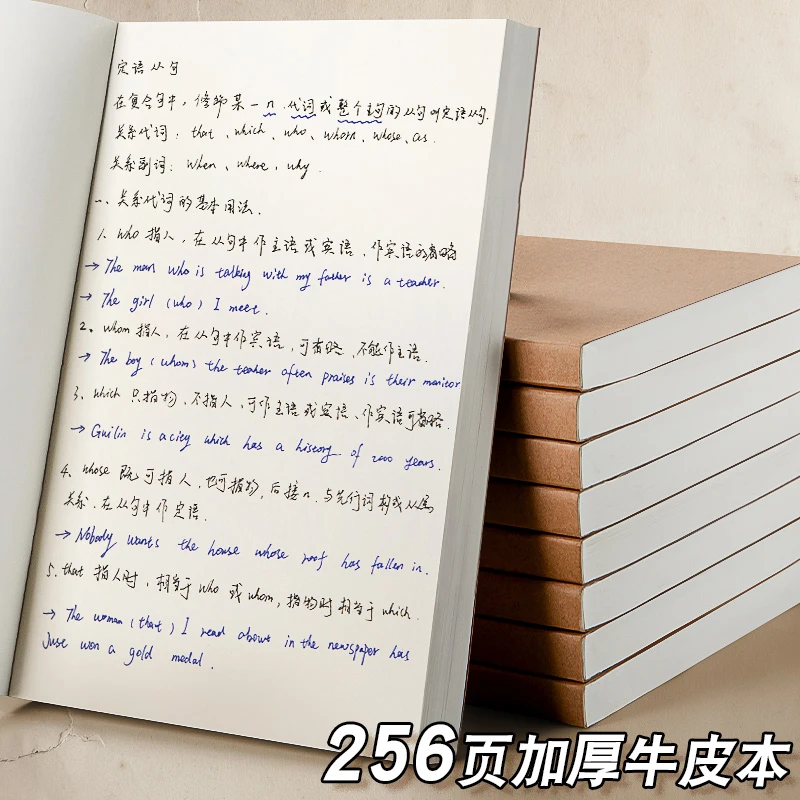 定语从句
在复合句中，修饰某一n.代词或整个主句的从句叫定语从句.
关系代词：that、which、who、whom、whose、as.
关系副词：when、where、why.
一、关系代词的基本用法.
1、who 指人，在从句中作主语或宾语，作宾语可省略
→ The man who is talking with my father is a teacher.
→ The girl (who) I meet.
2、whom 指人，在从句中作宾语，可省略，不能作主语.
→ The boy (whom) the teacher often praises is their monitor
3、which 只指物、不指人，可作主语或宾语、作宾语可省略.
→ Guilin is a city which has a history of 2000 years.
4、whose 既可指人，也可指物，后接n.与先行词构成从属
关系.在从句中作定语.
→ Nobody wants the house whose roof has fallen in.
5、that 指人时，相当于who 或whom，指物时相当于which.
→ The woman (that) I read about in the newspaper has
just won a gold medal.
256页加厚牛皮本